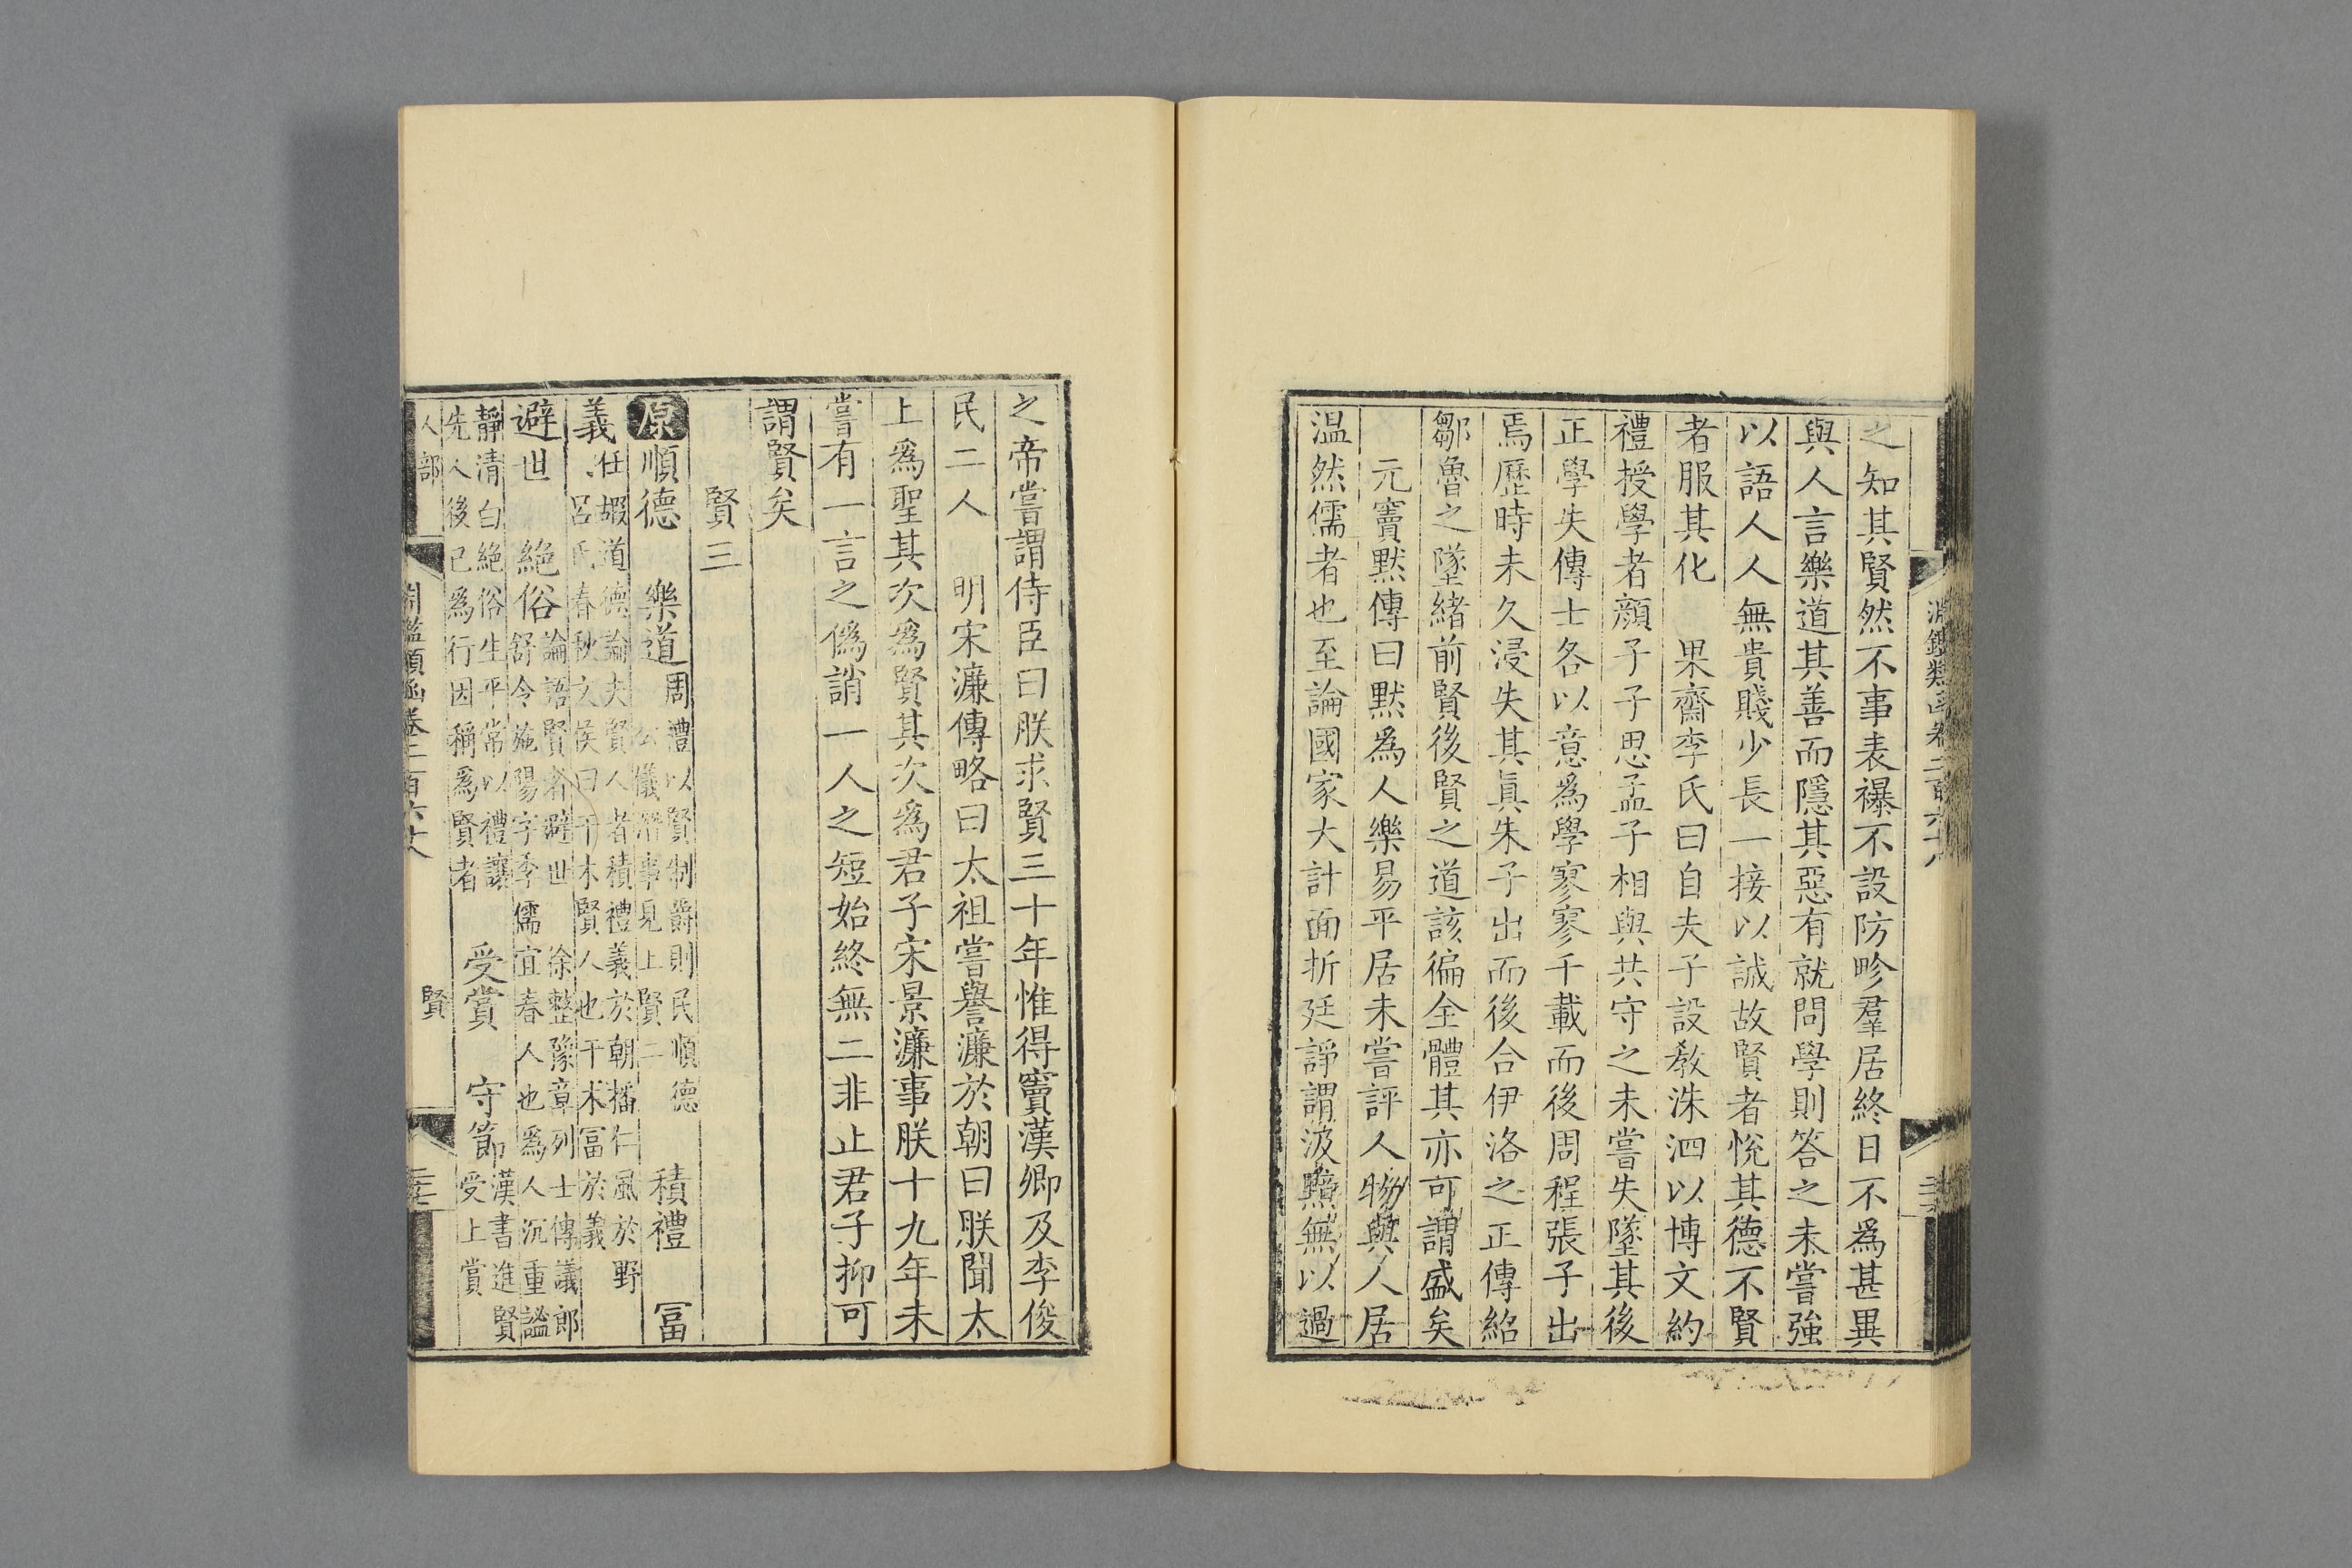 淵鑑類函卷二百六十八
之知其賢然不事表襮不設防畛羣居終日不爲甚異
與人言樂道其善而隱其惡有就問學則答之未嘗強
以語人人無貴賤少長一接以誠故賢者悅其德不賢
者服其化　果齋李氏曰自夫子設教洙泗以博文約
禮授學者顏子子思孟子相與共守之未嘗失墜其後
正學失傳士各以意爲學寥寥千載而後周程張子出
焉歷時未久浸失其眞朱子出而後合伊洛之正傳紹
鄒魯之墜緒前賢後賢之道該徧全體其亦可謂盛矣
元竇默傳曰默爲人樂易平居未嘗評人物與人居
温然儒者也至論國家大計面折廷諍謂汲黯無以過
之帝嘗謂侍臣曰朕求賢三十年惟得竇漢卿及李俊
民二人　明宋濂傳略曰太祖嘗譽濂於朝曰朕聞太
上爲聖其次爲賢其次爲君子宋景濂事朕十九年未
嘗有一言之僞誚一人之短始終無二非止君子抑可
謂賢矣
賢三
原順德　樂道周禮以賢制爵則民順德　公儀潛事見上賢二　積禮　富
義任嘏道德論夫賢人者積禮義於朝播仁風於野　呂氏春秋文侯曰干木賢人也干木富於義
避世　絶俗論語賢者避世　徐整豫章列士傳議郎舒令施陽字季儒宜春人也爲人沉重謐
靜清白絶俗生平常以禮讓先人後己爲行因稱爲賢者　受賞　守節漢書進賢受上賞
人部　淵鑑類函卷二百六十八　賢